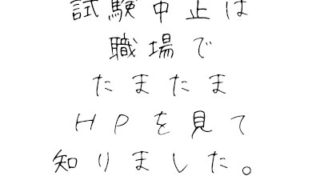 試験中止は
職場で
たまたま
HPを見て
知りました。